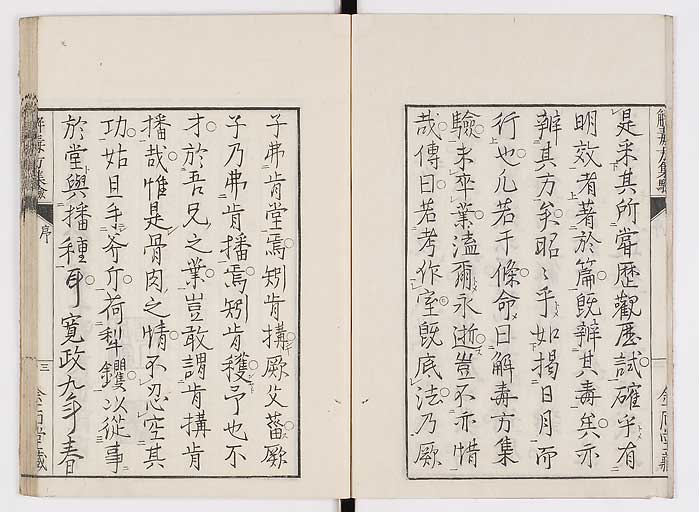 是采其所嘗歴觀歴試確乎有
明效者著於篇既辨其毒矣亦
辨其方矣昭々乎如揭日月而
行也凡若干條命曰解毒方集
驗未卒業溘爾永逝豈不亦惜
哉傳曰若考作室既底法乃厥
子弗肯堂焉矧肯搆厥父菑厥
子乃弗肯播焉矧肯穫予也不
才於吾兄之業豈敢謂肯搆肯
播哉惟是骨肉之情不忍空其
功姑且手斧斤荷犁钁以從事
於堂與播種耳寛政九年春
解毒方集驗
序
三